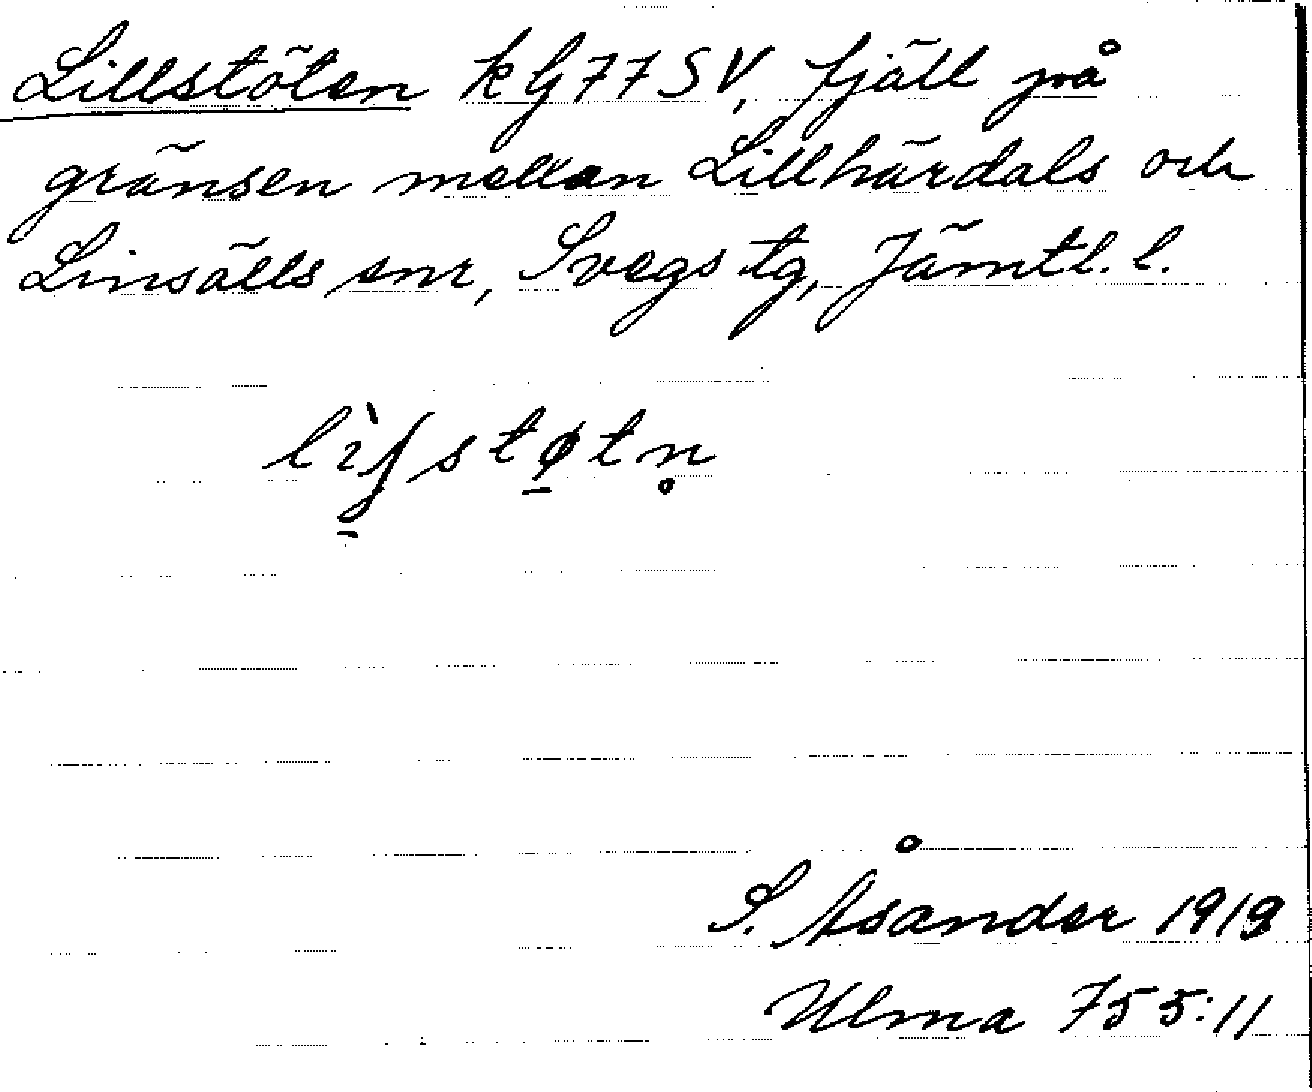 Lillstöten kG77SV, fjäll på
gränsen mellan Lillhärdals och
Linsälls snr, Svegs tg, Jämtl. l.
S. Åsander 1919
Ulma 755:11